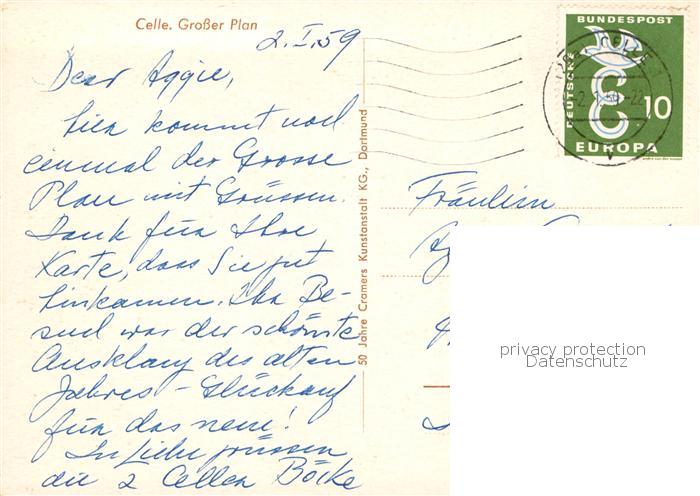 Celle. Großer Plan
2.I.59
Dear Aggie,
hier kommt noch
einmal der Grosse
Plan mit Grüssen.
Dank für Ihre
Karte, dass Sie gut
hinkamen. Ihr Be-
such war der schönste
Ausklang des alten
Jahres - Glückauf
für das neue!
In Liebe grüssen
die 2 Celler Böcke
50 Jahre Cramers Kunstanstalt KG., Dortmund
DEUTSCHE
BUNDESPOST
CELLE
10
EUROPA
Fräulein
privacy protection
Datenschutz